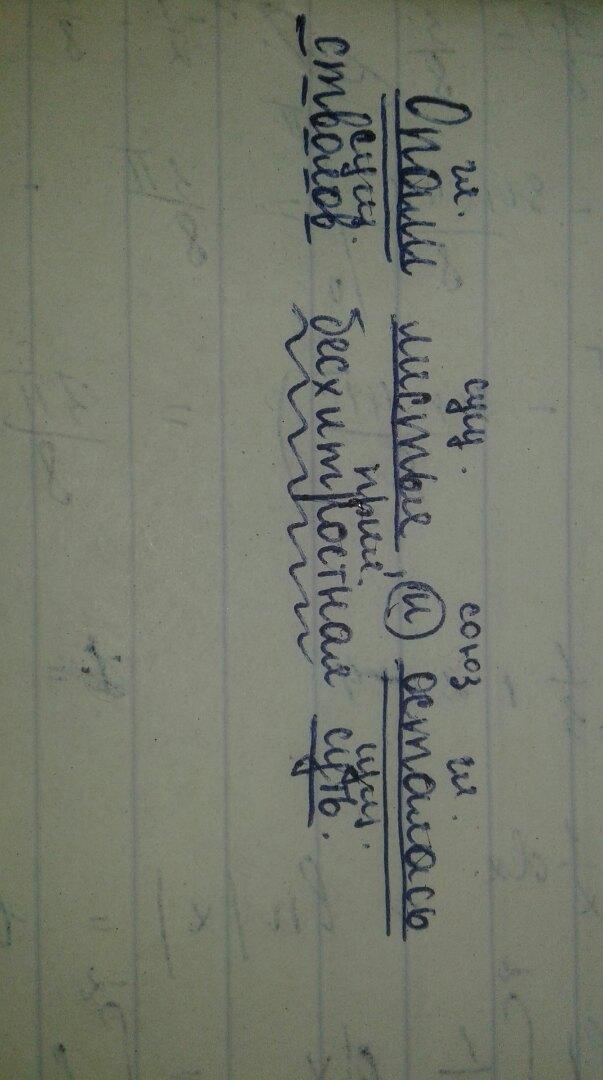 гл. сущ. союз гл.
Опали листья, и осталась
сущ. прил. сущ.
стволов бесхитростная суть.